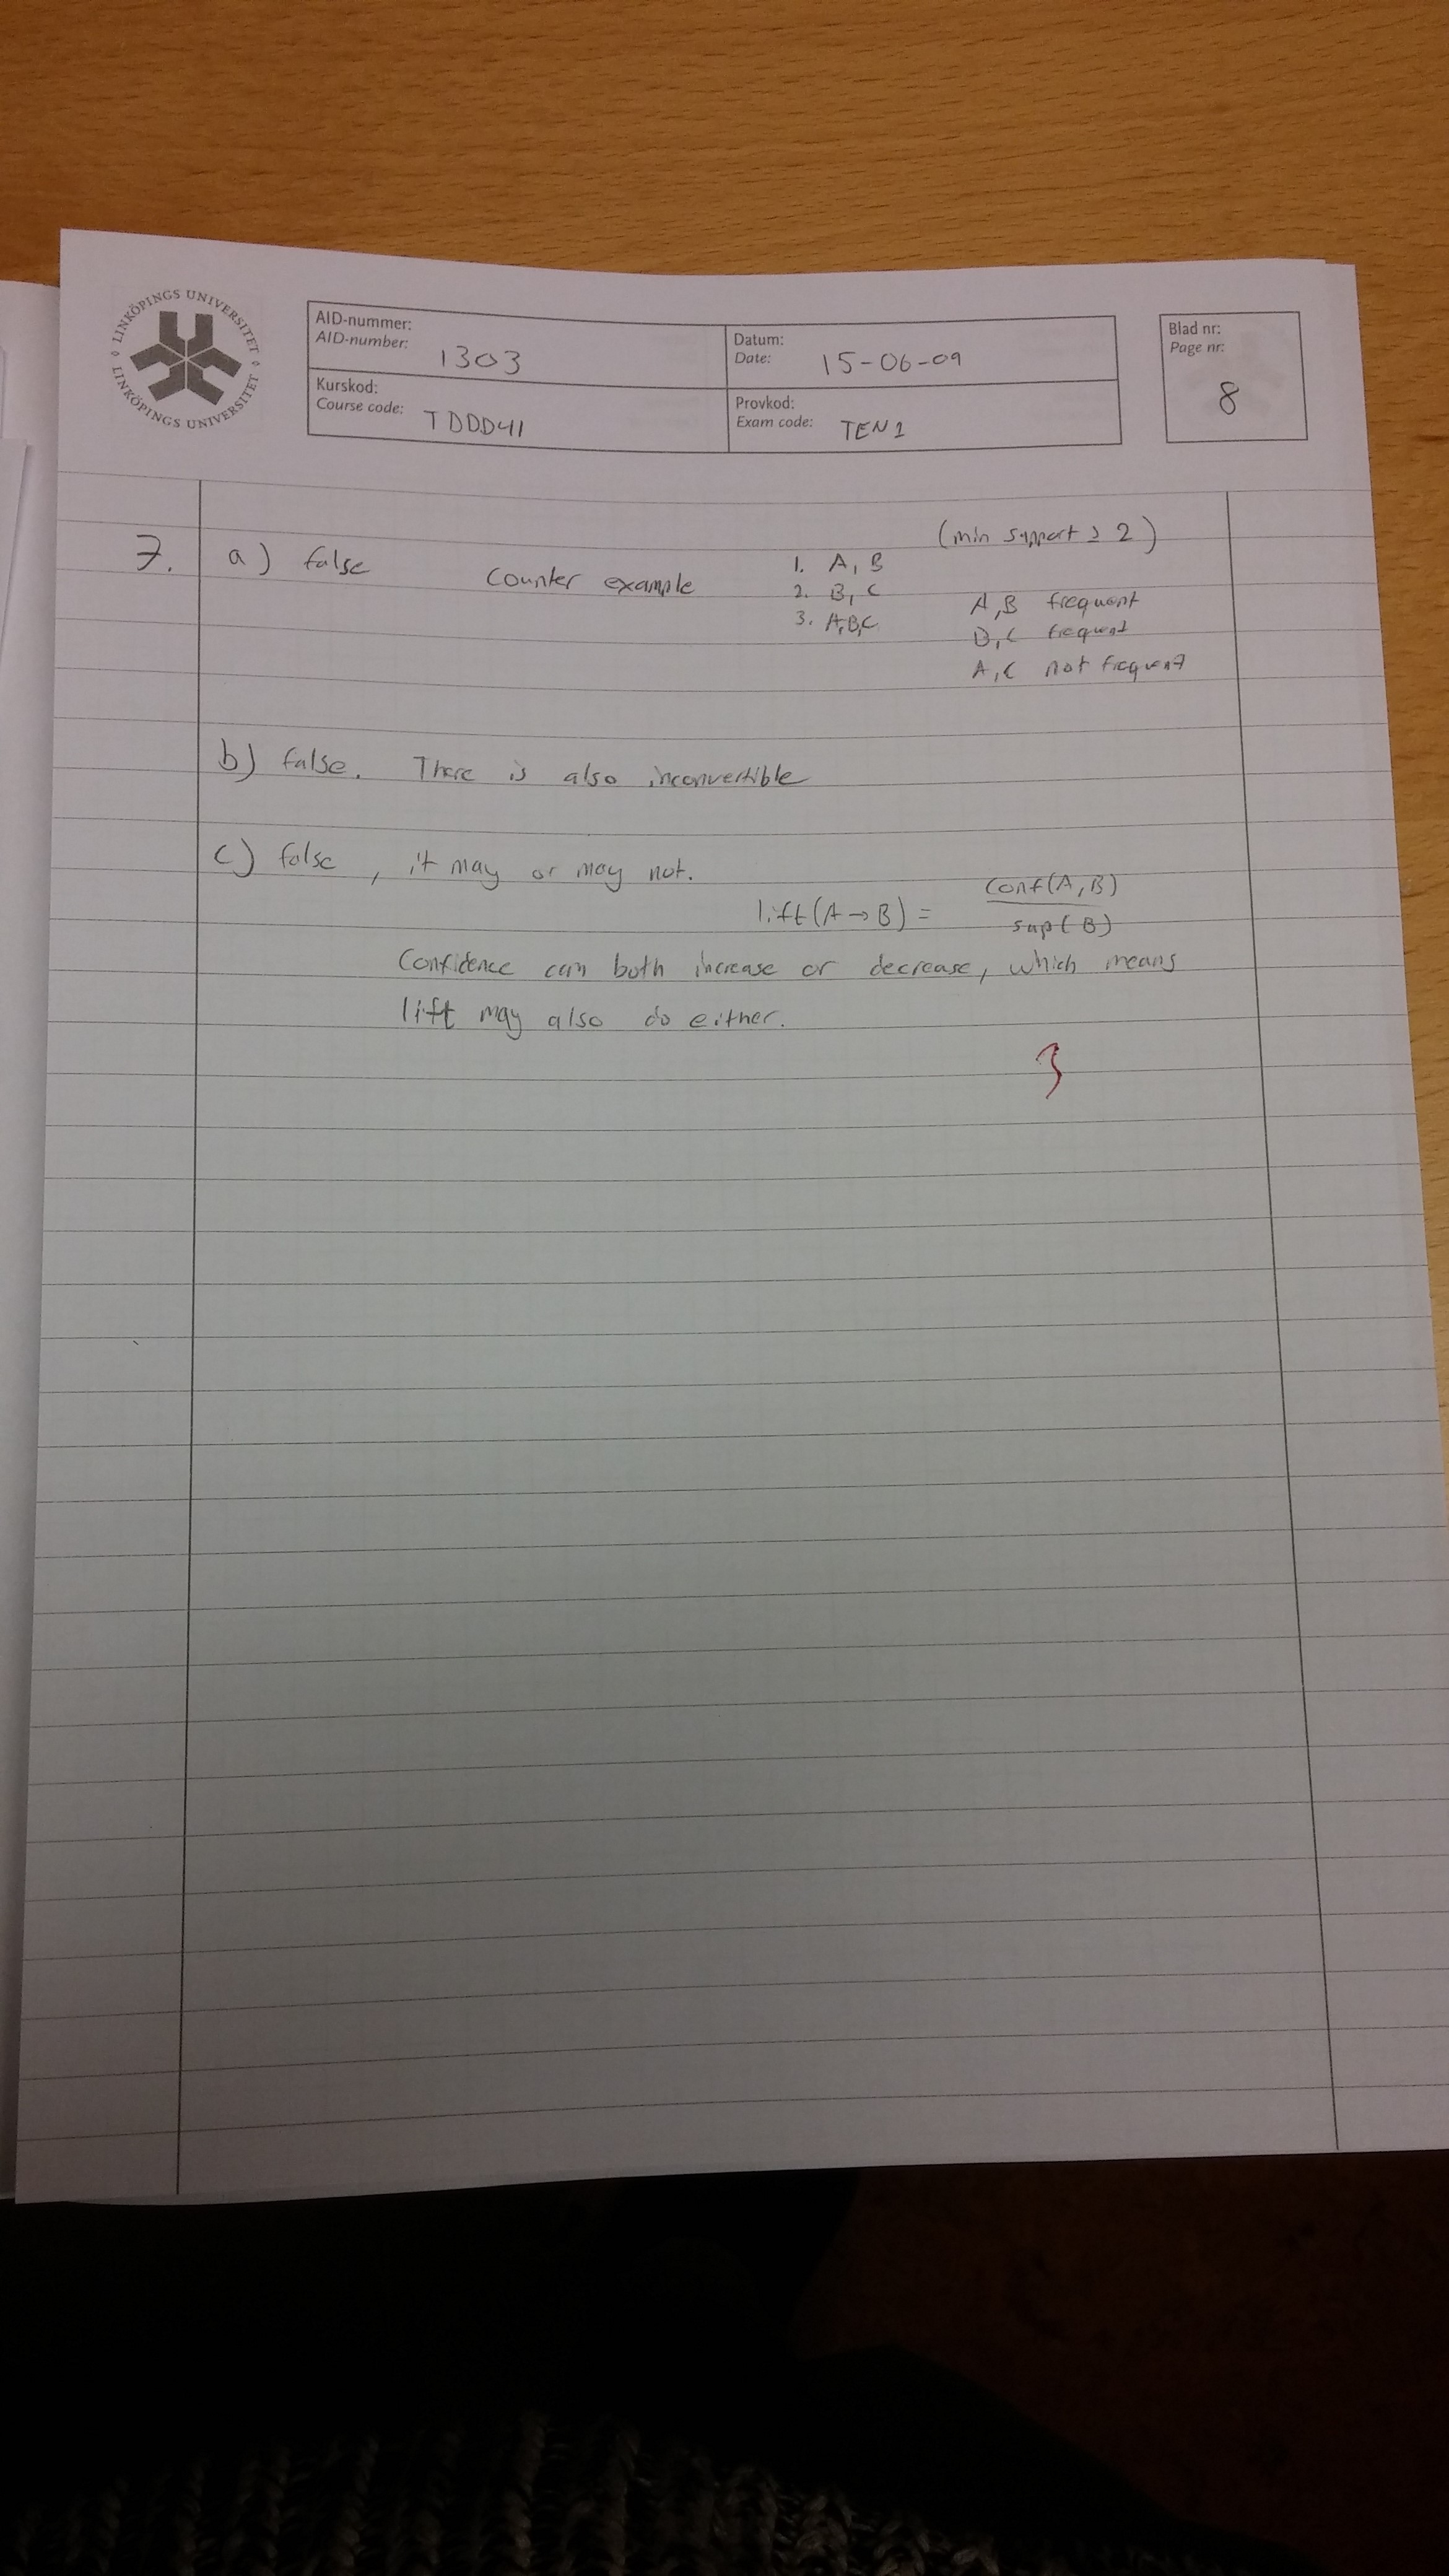 LINKÖPINGS UNIVERSITET
LINKÖPINGS UNIVERSITET
AID-nummer:
AID-number: 1303
Datum:
Date: 15-06-09
Blad nr:
Page nr:
8
Kurskod:
Course code: TDDD41
Provkod:
Exam code: TEN1
(min support ≥ 2)
7. a) false counter example
1. A, B
2. B, C
3. A,B,C
A,B frequent
B,C frequent
A,C not frequent
b) false. There is also inconvertible
c) false, it may or may not.
lift(A → B) = conf(A,B)
sup(B)
Confidence can both increase or decrease, which means
lift may also do either.
3